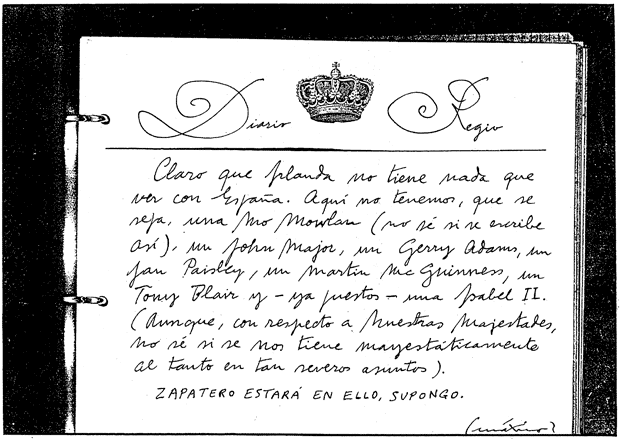 Diario Regio
Claro que Irlanda no tiene nada que
ver con España. Aquí no tenemos, que se
sepa, una Mo Mowlan (no sé si se escribe
así), un John Major, un Gerry Adams, un
Ian Paisley, un Martin McGuinness, un
Tony Blair y – ya puestos – una Isabel II.
(Aunque, con respecto a Nuestras Majestades,
no sé si se nos tiene mayestáticamente
al tanto en tan severos asuntos).
ZAPATERO ESTARÁ EN ELLO, SUPONGO.
(máximo)